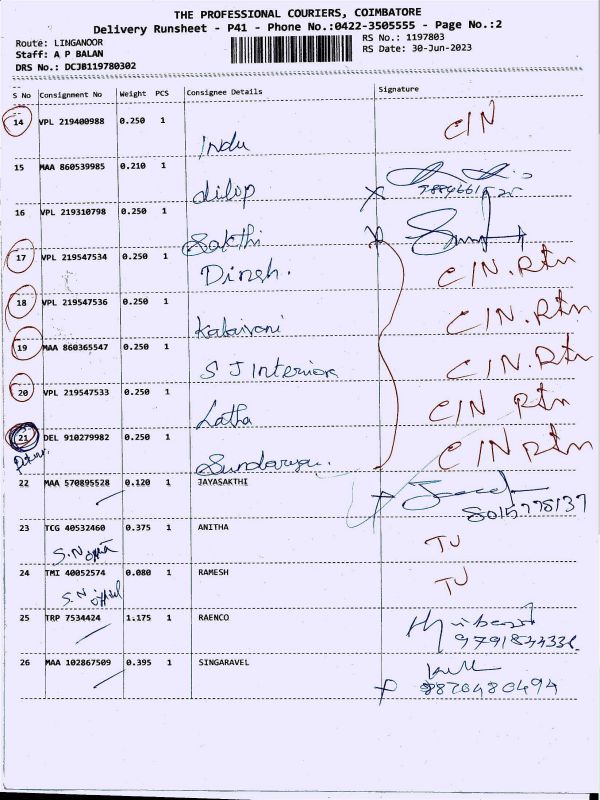 THE PROFESSIONAL COURIERS, COIMBATORE
Delivery Runsheet - P41 - Phone No.:0422-3505555 - Page No.:2
Route: LINGANOOR
RS No.: 1197803
Staff: A P BALAN
RS Date: 30-Jun-2023
DRS No.: DCJB119780302
S No Consignment No Weight PCS Consignee Details Signature
14 VPL 219400988 0.250 1
Indu CIN
15 MAA 860539985 0.210 1
dilip
16 VPL 219310798 0.250 1
Sakthi
17 VPL 219547534 0.250 1
Dinesh. CIN. Rtn
18 VPL 219547536 0.250 1
Kalaivani CIN. Rtn
19 MAA 860365547 0.250 1
S J Interior CIN. Rtn
20 VPL 219547533 0.250 1
Latha CIN Rtn
21 DEL 910279982 0.250 1
CIN Rtn
22 MAA 570895528 0.120 1 JAYASAKTHI
8015775137
23 TCG 40532460 0.375 1 ANITHA
TU
24 TMI 40052574 0.080 1 RAMESH
TU
25 TRP 7534424 1.175 1 RAENCO
26 MAA 102867509 0.395 1 SINGARAVEL
9820480494